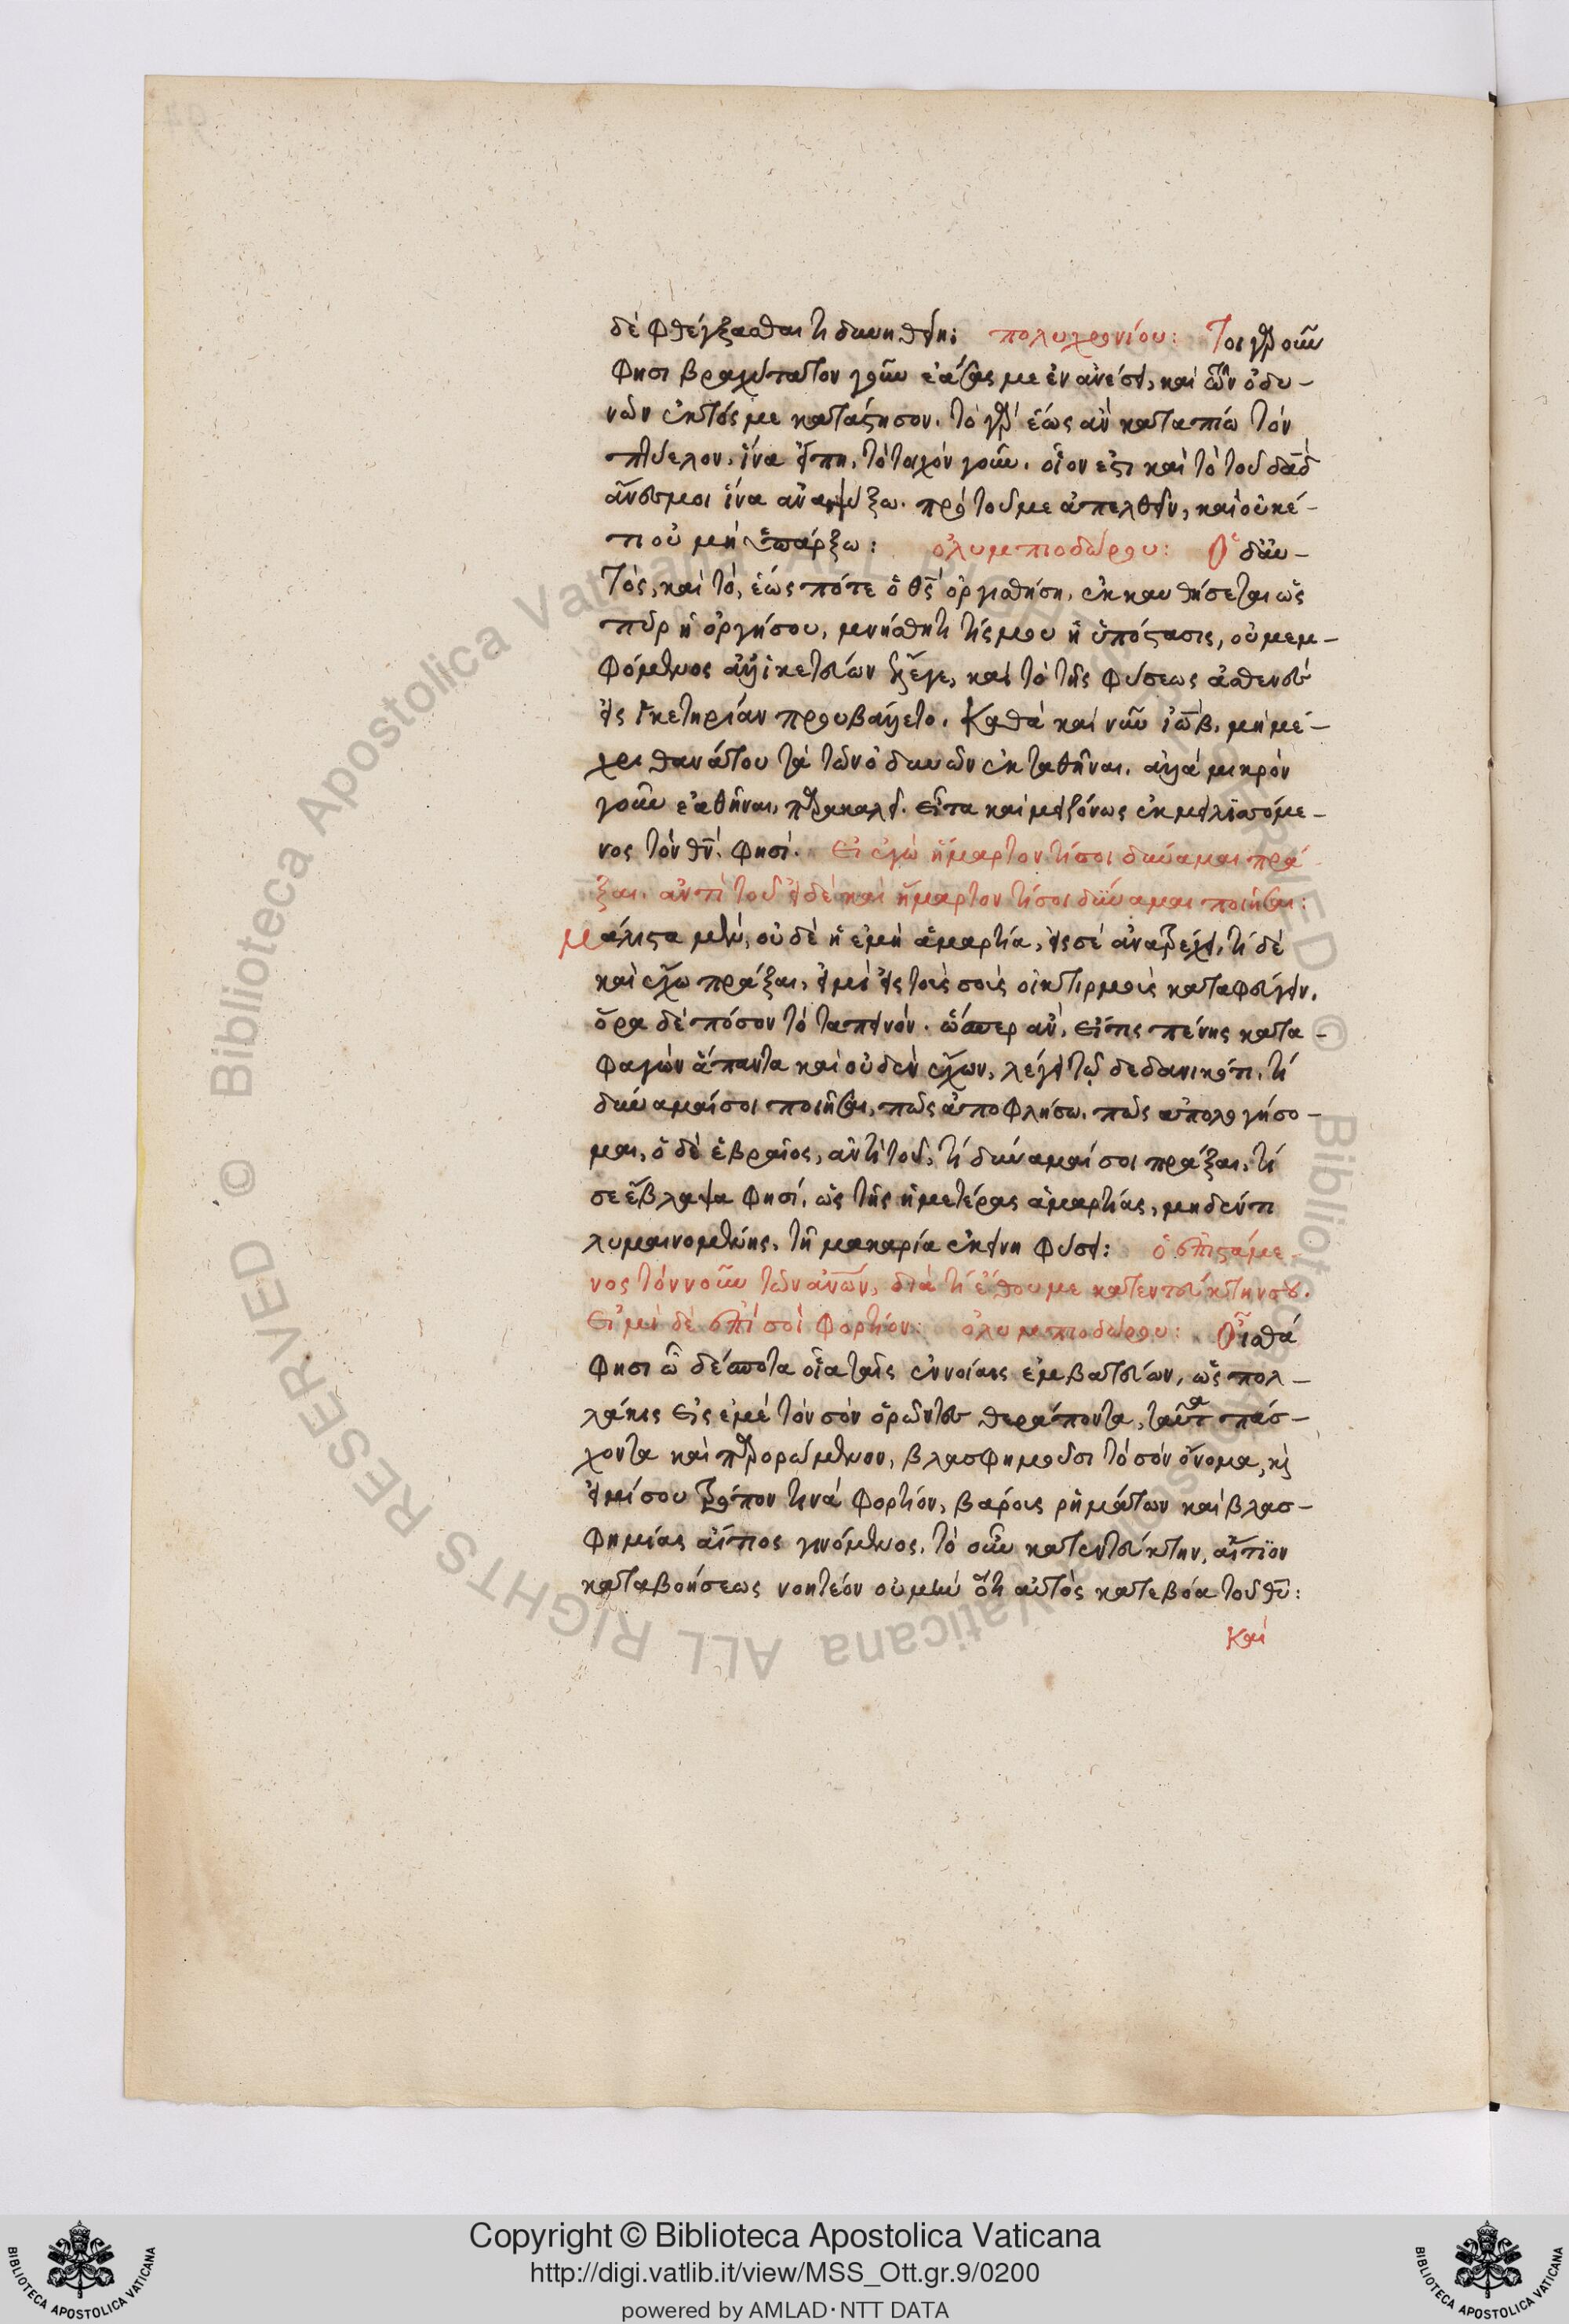 δὲ φθέγξασθαι τι δυνηθείη: πολυχρονίου: Τοιγαροῦν
φησι βραχύτατον γοῦν ἐάσας με ἐν ἀνέσει, καὶ τῶν ὀδυ-
νῶν ἐκτός με κατάστησον. τὸ γὰρ ἕως ἂν καταπίω τὸν
πτύελον, ἵνα εἴπη, τὸ ταχὺν γοῦν. οἷον ἐστι καὶ τὸ τοῦ δαδ
ἄνες μοι ἵνα ἀναψύξω. πρὸ τοῦ με ἀπελθεῖν, καὶ οὐκέ-
τι οὐ μὴ ὑπάρξω: ὀλυμπιοδώρου: Ὁ δαυ-
τὸς, καὶ τὸ, ἕως πότε ὁ θς ὀργισθήση, ἐκκαυθήσεται ὡς
πῦρ ἡ ὀργή σου, μνήσθητι τίς μου ἡ ὑπόστασις, οὐ μεμ-
φόμενος ἀλλ' ἱκετεύων ἔλεγε, καὶ τὸ τῆς φύσεως ἀσθενὲς
εἰς ἱκετηρίαν προυβάλλετο. Καθὰ καὶ νῦν ἰὼβ, μὴ μέ-
χρι θανάτου τὰ τῶν ὀδυνῶν ἐκταθῆναι, ἀλλὰ μικρὸν
γοῦν ἐαθῆναι, παρακαλεῖ. Εἶτα καὶ μειζόνως ἐκμειλισσόμε-
νος τὸν θν, φησί. Εἰ ἐγὼ ἥμαρτον τί σοι δύναμαι πρᾶ-
ξαι. ἀντὶ τοῦ εἰ δὲ καὶ ἥμαρτον τί σοι δύναμαι ποιῆσαι:
Μάλιστα μὲν, οὐδὲ ἡ ἐμὴ ἁμαρτία, εἰς σὲ ἀνατρέχει, τί δὲ
καὶ ἔχω πρᾶξαι, εἰ μὴ εἰς τοὺς σοὺς οἰκτιρμοὺς καταφεύγειν.
ὅρα δὲ πόσον τὸ ταπεινόν. ὥσπερ ἂν, εἴ τις πένης κατα-
φαγὼν ἅπαντα καὶ οὐδὲν ἔχων, λέγει τῷ δεδανικότι, τί
δύναμαί σοι ποιῆσαι, πῶς ἀποφλήσω, πῶς ἀπολογήσο-
μαι, ὁ δὲ ἑβραῖος, ἀντὶ τοῦ, τί δύναμαί σοι πρᾶξαι, τί
σε ἔβλαψα φησί, ὡς τῆς ἡμετέρας ἁμαρτίας, μηδέν τι
λυμαινομένης, τῇ μακαρία ἐκείνη φύσει: ὁ ἐπιστάμε-
νος τὸν νοῦν τῶν ἀνων, διὰ τί ἔθου με κατεντεύκτην σου.
Εἰμὶ δὲ ἐπὶ σοὶ φορτίον: ὀλυμπιοδώρου: Οἶσθα
φησι ὦ δέσποτα οἷα ταῖς ἐννοίαις ἐμβατεύων, ὡς πολ-
λάκις εἰς ἐμὲ τὸν σὸν ὁρῶντες θεράποντα, ταῦτα πάσ-
χοντα καὶ παρορώμενον, βλασφημοῦσι τὸ σὸν ὄνομα, κ
εἰμί σου τρόπον τινὰ φορτίον, βαρέοις ῥημάτων καὶ βλασ-
φημίας αἴτιος γινόμενος. τὸ οὖν κατεντεύκτην, αἴτιον
καταβοήσεως νοητέον οὐ μὲν ὅτι αὐτὸς κατεβόα τοῦ θυ:
Καὶ
Copyright © Biblioteca Apostolica Vaticana
http://digi.vatlib.it/view/MSS_Ott.gr.9/0200
powered by AMLAD·NTT DATA